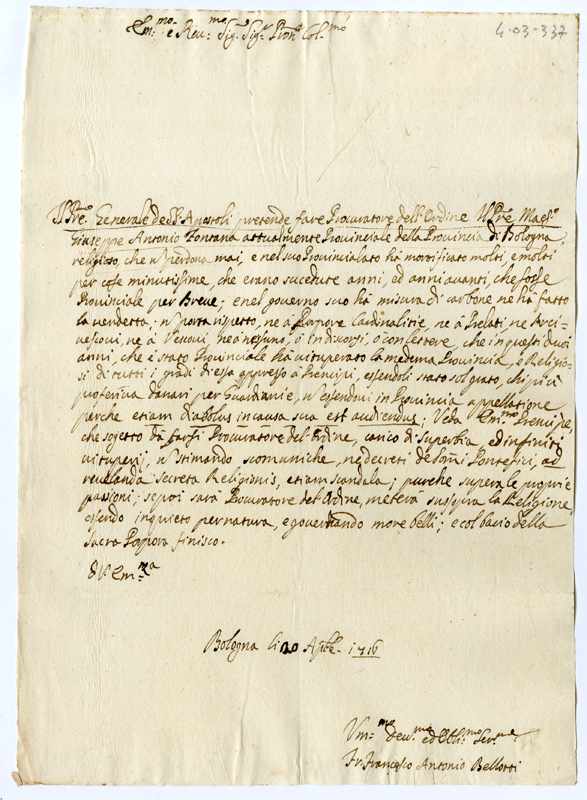 Em.mo e Rev.mo Sig.r Sig.r Pron Col.mo
4-03-337
Il Pre. Generale degli Apostoli pretende fare Procuratore dell'Ordine Il Pre. Maes.o
Giuseppe Antonio Fontana attualmente Provinciale della Provincia di Bologna,
religioso, che n perdona mai, e nel suo Provincialato hà mortificato molti, e molti
per cose minutissime, che erano succedute anni, ed anni avanti, che fosse
Provinciale per Breve; e nel governo suo hà misura di carbone ne hà fatto
la vendetta; n porta rispetto, ne à Porpore Cardinalitie, ne à Prelati, ne Arci-
vescovi, ne à Vescovi, ne a nessuno, ò in discorsi, ò in lettere, che in questi duoi
anni, che è stato Provinciale hà vituperato la medema Provincia, e Religio-
si di tutti i gradi di essa appresso à Prencipi, essendoli stato sol grato, chi più
proferiva danari per Guardianie, n essendovi in Provincia appellatione
perche etiam diabolus in causa sua est audiendus; Veda Em.mo Prencipe,
che sogetto dà farsi Procuratore del Ordine, carico di superbia, ed infiniti
vituperij, n stimando scomuniche, ne decreti de Som.i Pontefici, ad
revelanda secreta Religionis, etiam scandala; purche supera le proprie
passioni; se poi sarà Procuratore del Ordine, meterà sussopra la Religione
essendo inquieto per natura, e governando more belli; e col bacio della
Sacra Porpora finisco.
D V. Em.ma
Bologna li 20 Aprile 1716
Um.mo devo.mo ed Obli.mo Ser.me
Fr. Francesco Antonio Bellotti